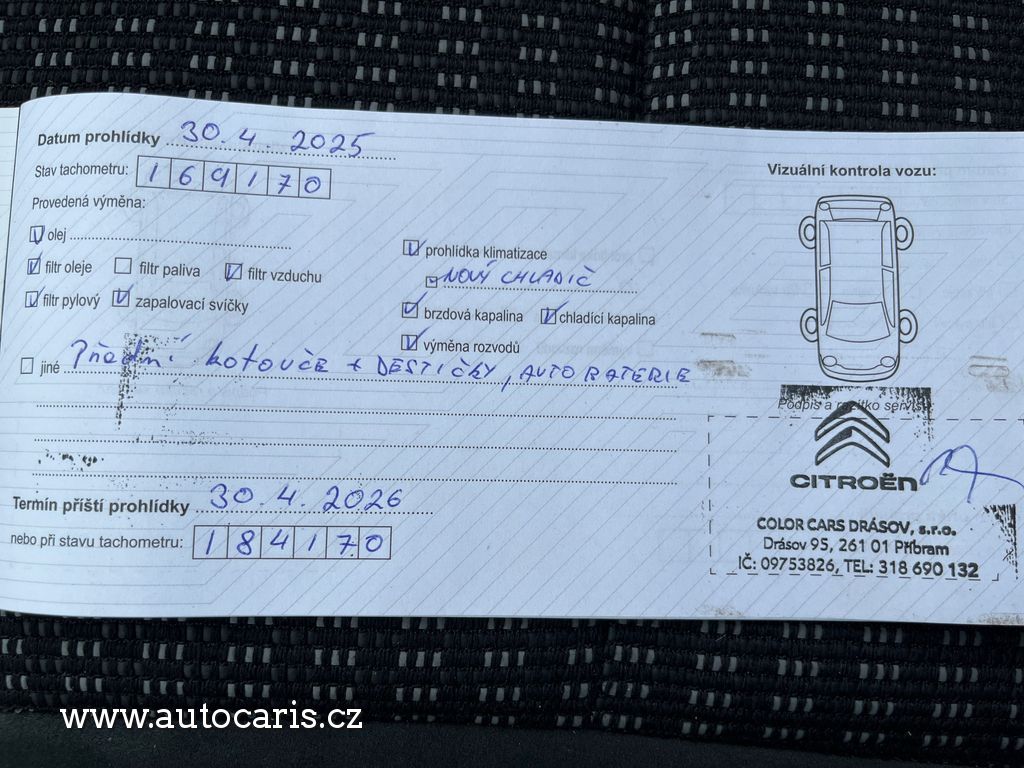 Datum prohlídky 30. 4. 2025
Stav tachometru: 169170
Provedená výměna:
olej
filtr oleje filtr paliva filtr vzduchu
filtr pylový zapalovací svíčky
prohlídka klimatizace
NOVÝ CHLADIČ
brzdová kapalina chladící kapalina
výměna rozvodů
jiné Přední kotouče + DESTIČKY, AUTO BATERIE
Termín příští prohlídky 30. 4. 2026
nebo při stavu tachometru: 184170
Vizuální kontrola vozu:
Podpis a razítko servisu
CITROËN
COLOR CARS DRÁSOV, s.r.o.
Drásov 95, 261 01 Příbram
IČ: 09753826, TEL: 318 690 132
www.autocaris.cz